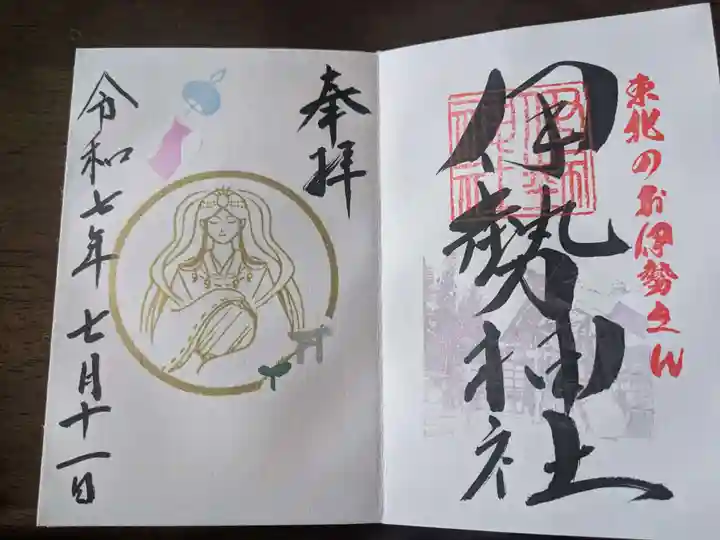 東北のお伊勢さん
伊勢神社
奉拝
令和七年 七月十一日